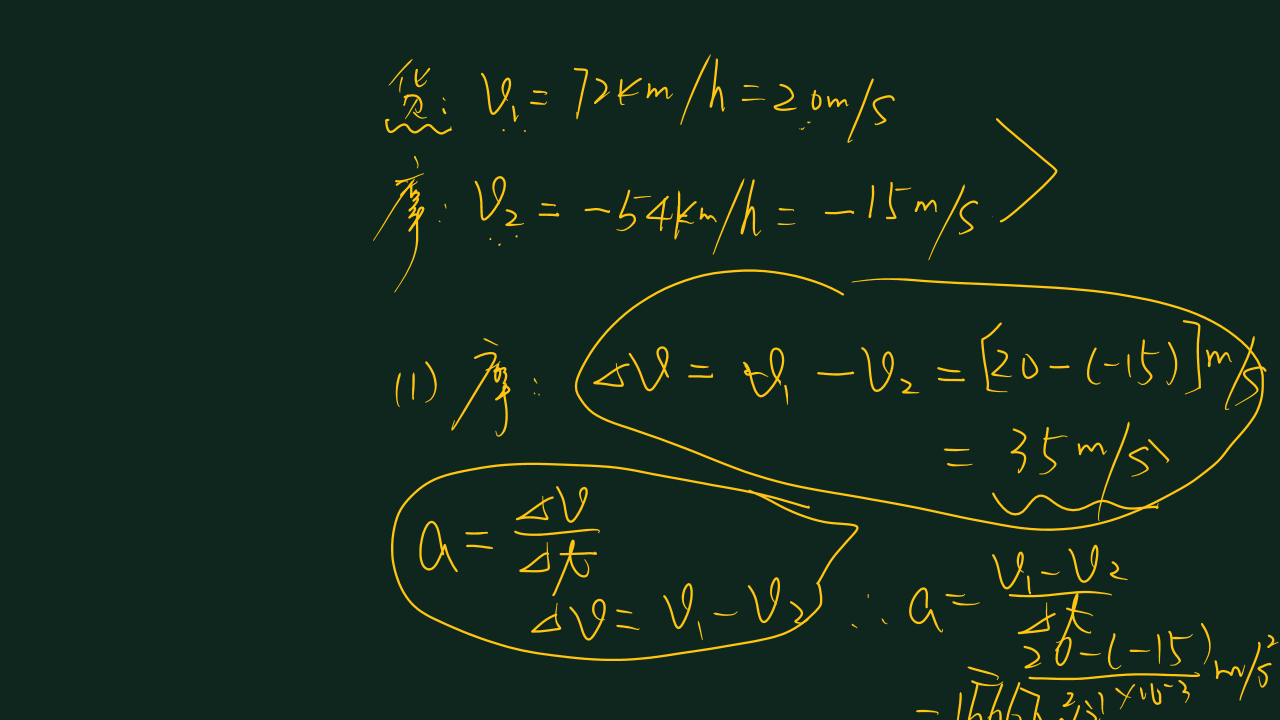 货: v₁ = 72km/h = 20m/s
摩: v₂ = -54km/h = -15m/s
(1) 摩: Δv = v₁ - v₂ = [20-(-15)]m/s
= 35m/s
a = Δv/Δt
Δv = v₁ - v₂
∴ a = (v₁ - v₂)/Δt
20-(-15) m/s²